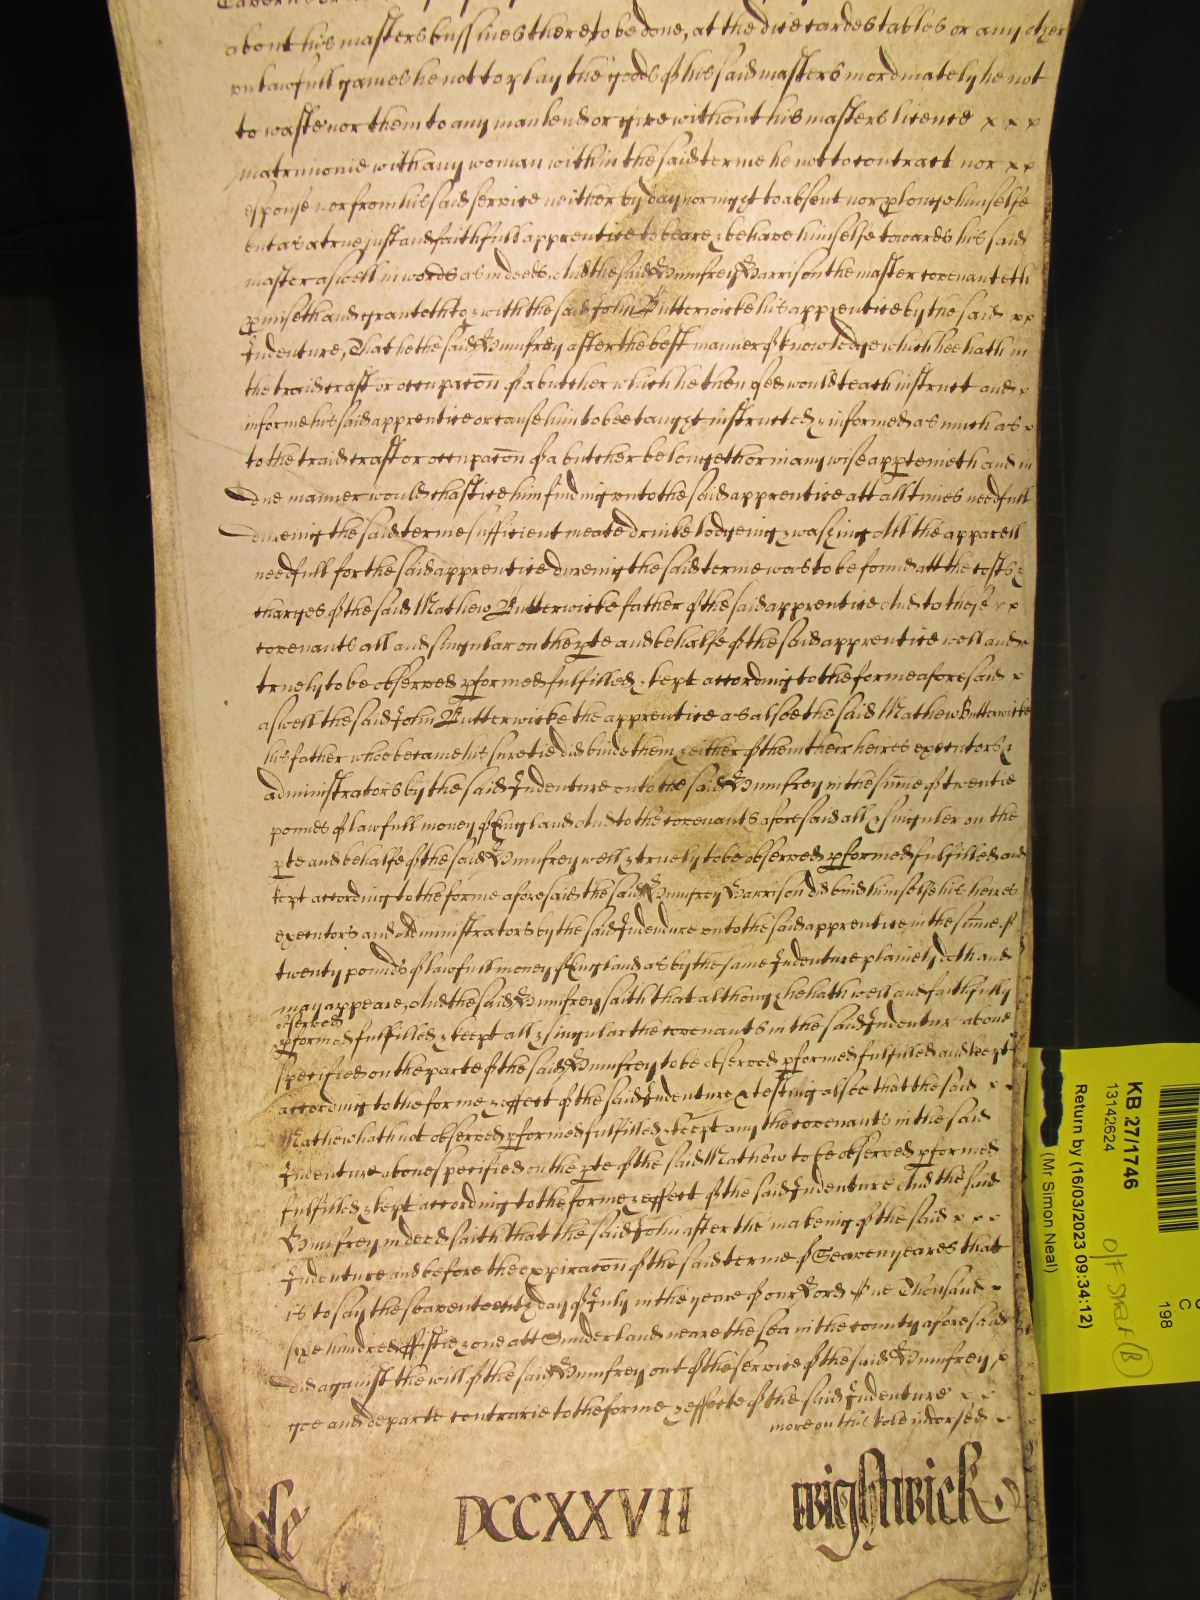 about his masters bussines there to be done, at the dice cardes tables or any other
unlawfull games he not to play the goods of his said masters inordinately he not
to wast nor them to any man lend or give without his masters licence x x x
matrimonie with any woman within the said terme he not to contract nor x x
espouse nor from his said service neither by day nor night to absent nor plonge himselfe
but as a true just and faithfull apprentice to beare & behave himselfe towards his said
master aswell in words as in deeds, And the said Humfrey Harrison the master covenanteth
pmiseth and granteth to & with the said John Butterwicke his apprentice by the said x x
Indenture, That he the said Humfrey after the best manner of knowledge which hee hath in
the traid craft or occupacon of a butcher which he then used would teach instruct and x
informe his said apprentice or cause him to bee taught instructed & informed as much as x
to the traid craft or occupacon of a butcher belongeth or in any wise apperteineth and in
due manner would chastice him finding unto the said apprentice att all times needfull
dureing the said terme sufficient meate drinke lodgeing & washing All the apparell
needfull for the said apprentice dureing the said terme was to be found att the costs &
charges of the said Mathew Butterwicke father of the said apprentice And to these x x
covenants all and singular on the pte and behalfe of the said apprentice well and
truely to be observed pformed fulfilled & kept according to the forme aforesaid x
aswell the said John Butterwicke the apprentice as alsoe the said Mathew Butterwicke
his father who became his suretie did binde them & either of them their heires executors &
administrators by the said Indenture unto the said Humfrey in the sume of twentie
pounds of lawfull money of England And to the covenants aforesaid all & singuler on the
pte and behalfe of the said Humfrey well & truely to be observed pformed fulfilled and
kept according to the forme aforesaid the said Humfrey Harrison did bind himselfe his heires
executors and Administrators by the said Indendure unto the said apprentice in the sume of
twenty pounds of lawfull money of England as by the same Indenture plainely doth and
may appeare, And the said Humfrey saith that although he hath well and faithfully
observed
pformed fulfilled & keept all & singular the covenants in the said Indenture above
specified on the parte of the said Humfrey to be observed pformed fulfilled and keept
according to the forme & effect of the said Indenture & testing alsoe that the said x x
Mathew hath not observed pformed fulfilled & keept any the covenants in the said
Indenture above specified on the pte of the said Mathew to be observed pformed
fulfilled & kept according to the forme & effect of the said Indenture And the said
Humfrey in deed saith that the said John after the makeing of the said x x x
Indenture and before the expiracon of the said terme of Seaven yeares that
is to say the seaventeenth day of July in the yeare of our Lord One Thousand
sixe hundred fiftie & one att Sunderland neare the sea in the county aforesaid
did against the will of the said Humfrey out of the service of the said Humfrey x
goe and departe contrarie to the forme & effecte of the said Indenture x x
more on this role indorsed
DCCXXVII
Wightwick
198
KB 27/1746
13142624
Return by (16/03/2023 09:34:12)
(Mr Simon Neal)